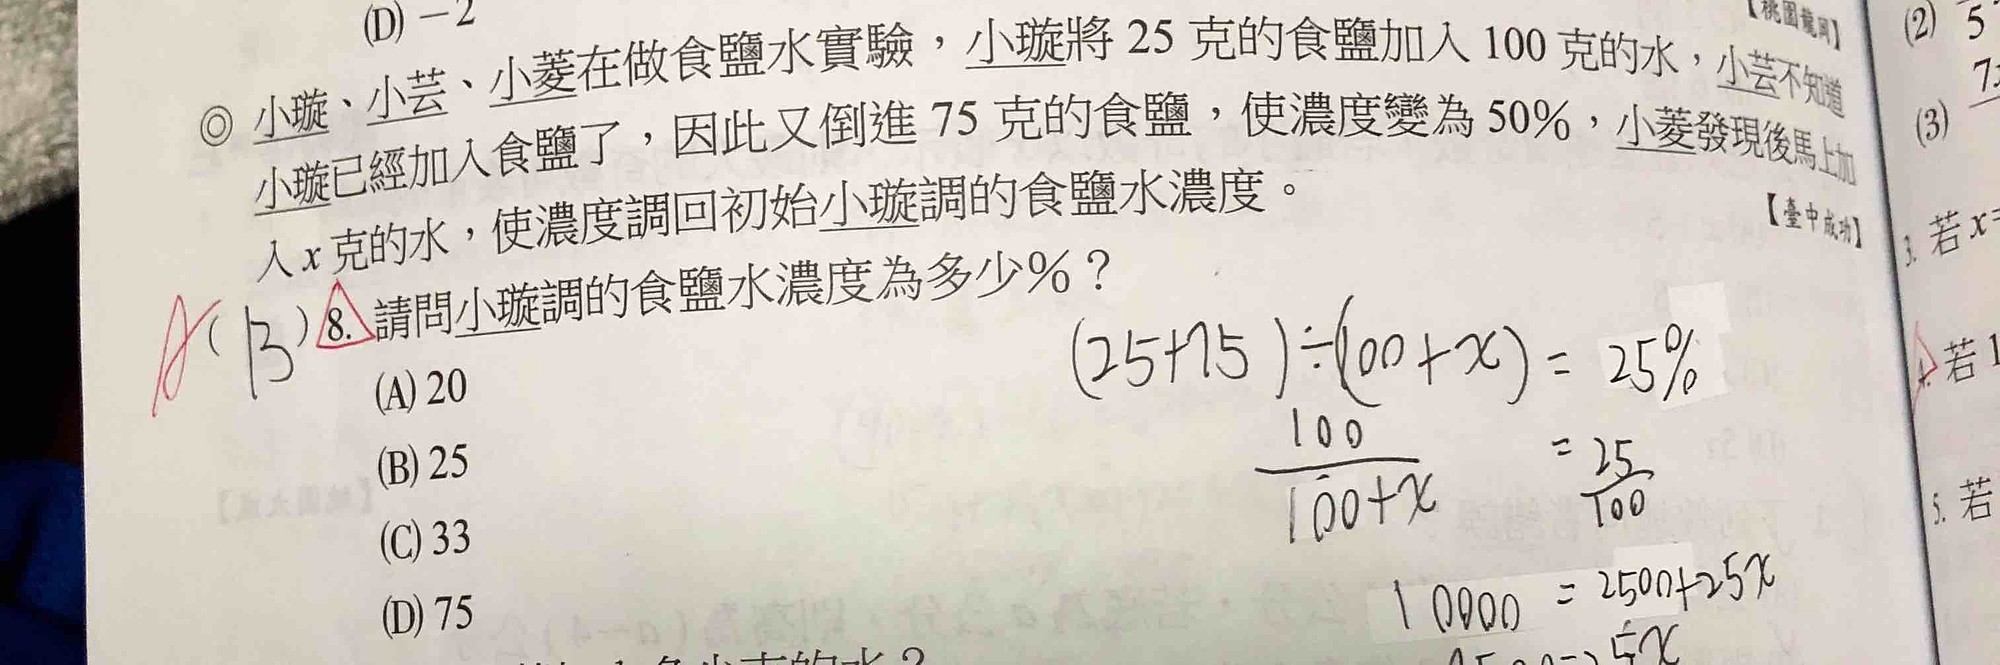 (D) －2
【桃園龍岡】
◎ 小璇、小芸、小菱在做食鹽水實驗，小璇將 25 克的食鹽加入 100 克的水，小芸不知道
小璇已經加入食鹽了，因此又倒進 75 克的食鹽，使濃度變為 50%，小菱發現後馬上加
入 x 克的水，使濃度調回初始小璇調的食鹽水濃度。
【臺中成功】
A ( B ) 8. 請問小璇調的食鹽水濃度為多少%？
(A) 20
(B) 25
(C) 33
(D) 75
(25+75)÷(100+x) = 25%
100/100+x = 25/100
10000 = 2500+25x
(2) 5
(3) 7
3. 若 x=
若 1
5. 若